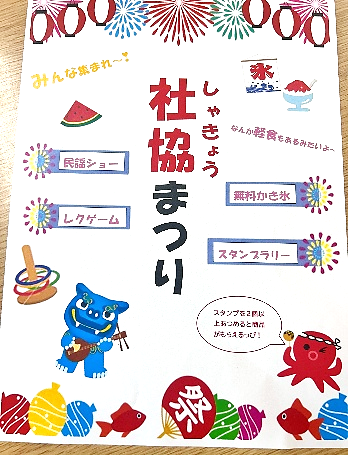 みんな集まれ～!
氷
しゃきょう
社協まつり
なんか軽食もあるみたいよ～
民謡ショー
無料かき氷
レクゲーム
スタンプラリー
スタンプを2個以
上あつめると商品
がもらえるっぴ！
祭